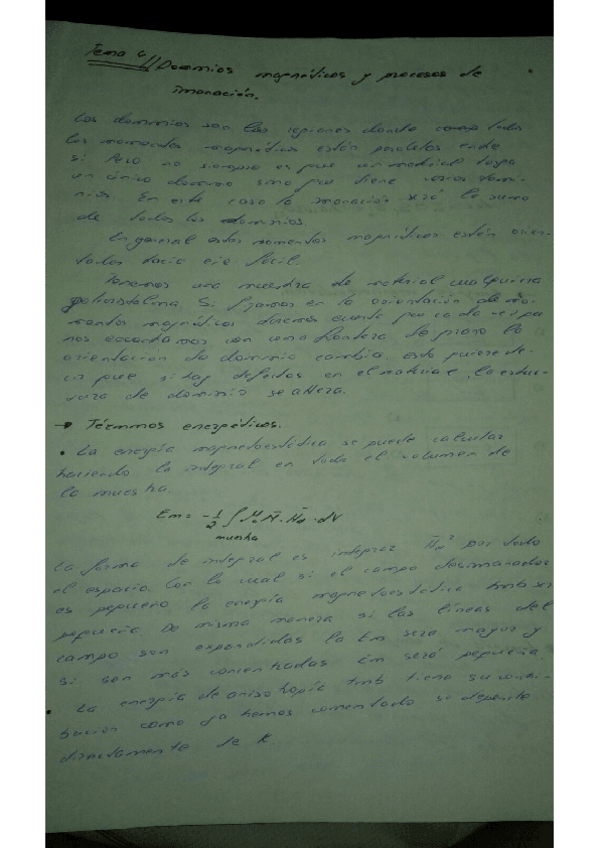 Tema 6// Dominios magnéticos y procesos de
imanación.
Los dominios son las regiones donde todos
los momentos magnéticos están paralelos entre
si. Pero no siempre es que un material tenga
un único dominio sino que tiene varios domi-
nios. En este caso la imanación será la suma
de todos los dominios.
En general estos momentos magnéticos están orien-
tados hacia eje fácil.
Tenemos una muestra de material cualquiera
policristalina. Si fijamos en la orientación de mo-
mentos magnéticos daremos cuenta que cada vez que
nos encontramos con una frontera de grano la
orientación de dominio cambia. esto quiere de-
cir que si hay defectos en el material, la estruc-
tura de dominio se altera.
→ Términos energéticos.
• La energía magnetoestática se puede calcular
haciendo la integral en todo el volumen de
la muestra.
Em = -1/2 ∫ μ₀ M̄ · H̄d · dV
muestra
La forma de integral es integrar H̄d² por todo
el espacio. Con lo cual si el campo desimanador
es pequeño la energía magnetoestática tmb es
pequeña. De misma manera si las líneas del
campo son expandidas la Em sera mayor y
si son más concentradas Em será pequeña.
• La energía de anisotropía tmb tiene su contri-
bución como ya hemos comentado si depende
directamente de K.